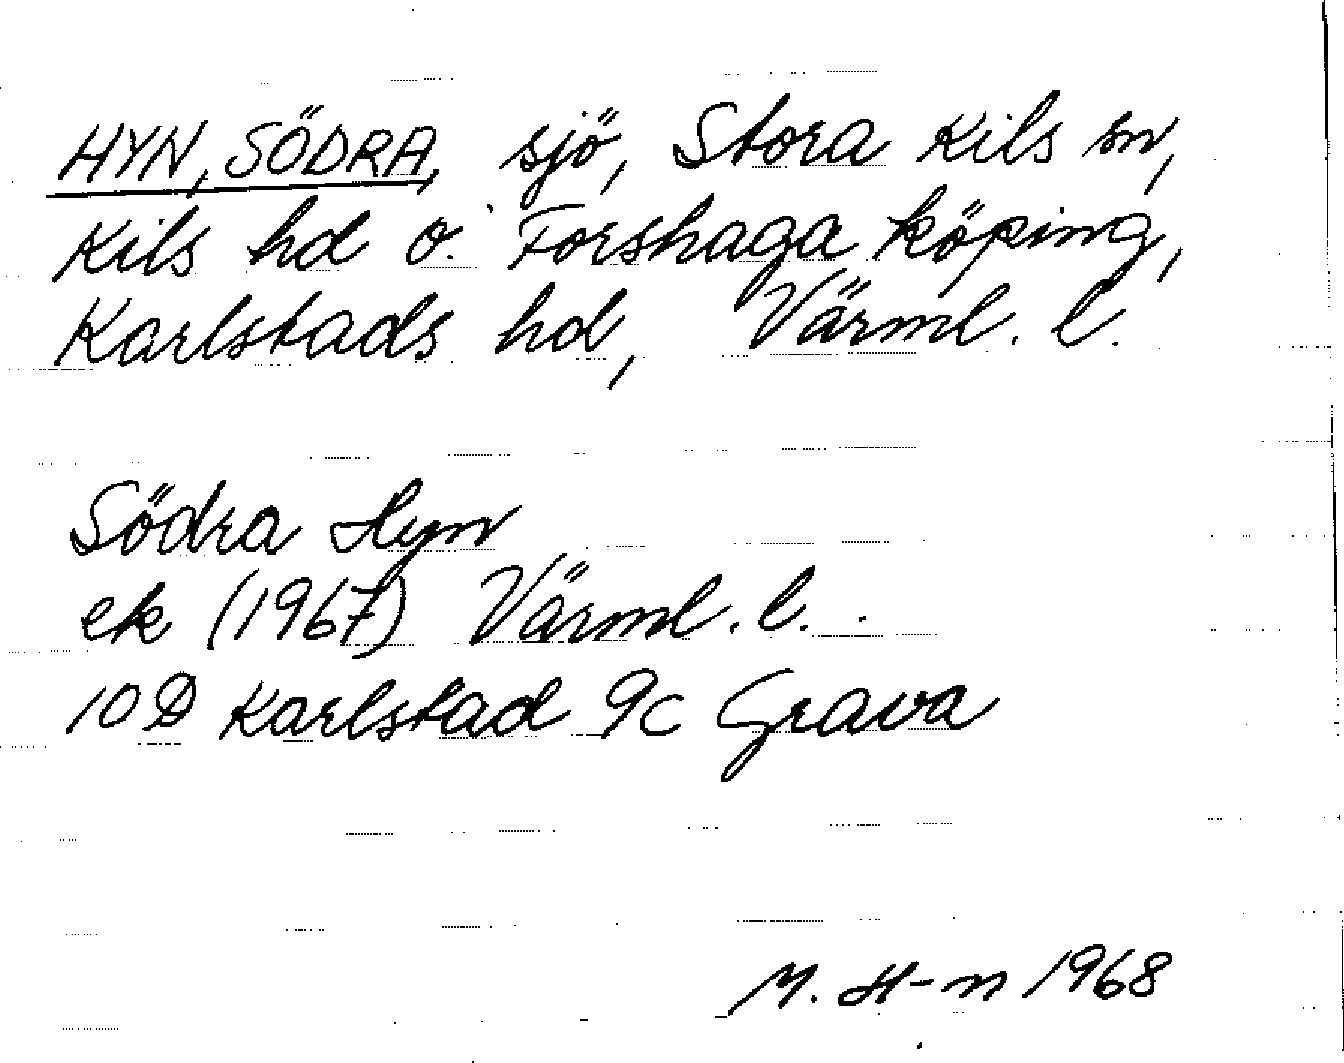 HYN, SÖDRA, sjö, Stora Kils sn,
Kils hd o. Forshaga köping,
Karlstads hd, Värml. l.
Södra Hyn
ek (1967) Värml. l.
10 D Karlstad 9c Grava
M. H-n 1968